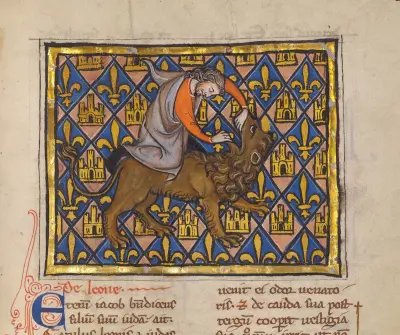 De leone
Eteni iacob bndicens
filium suum iudam ait.
leonis iudas
uenit ei odor uenato
ris. & de cauda sua post
tergum cooperit uestigia